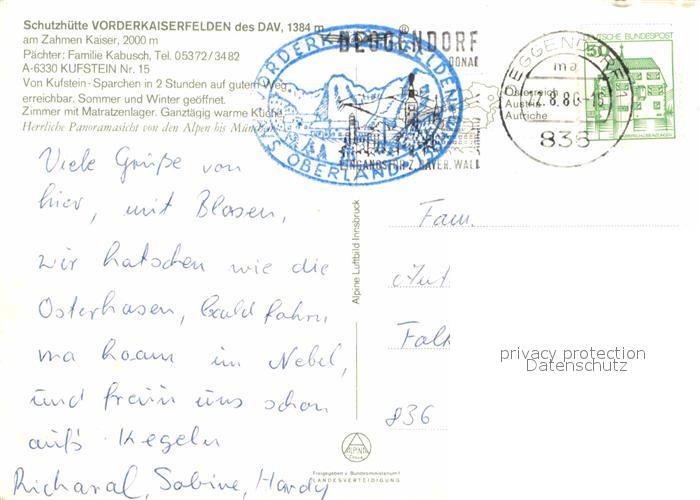 Schutzhütte VORDERKAISERFELDEN des DAV, 1384 m
am Zahmen Kaiser, 2000 m
Pächter: Familie Kabusch, Tel. 05372/3482
A-6330 KUFSTEIN Nr. 15
Von Kufstein-Sparchen in 2 Stunden auf gutem Weg
erreichbar. Sommer und Winter geöffnet.
Zimmer mit Matratzenlager. Ganztägig warme Küche
Herrliche Panoramasicht von den Alpen bis
VORDERKAISERFELDEN
OBERLAND
DEGGENDORF
BAYER. WALD
DEGGENDORF
ma
2.8.86-18
836
50
DEUTSCHE BUNDESPOST
Österreich
Austria
Autriche
Viele Grüße von
hier, mit Blasen,
wir hatschen wie die
Osterhasen, bald fahrn
ma hoam im Nebel,
und frein uns schon
auf's Kegeln
Richard, Sabine, Hardy
Alpine Luftbild Innsbruck
Fam.
836
privacy protection
Datenschutz
ALPINE
Freigegeben v. Bundesministerium f.
LANDESVERTEIDIGUNG